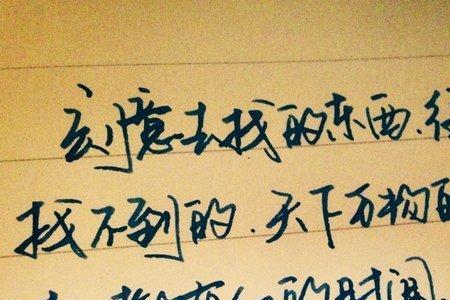 刻意去找的东西,往
找不到的.天下万物
的时间